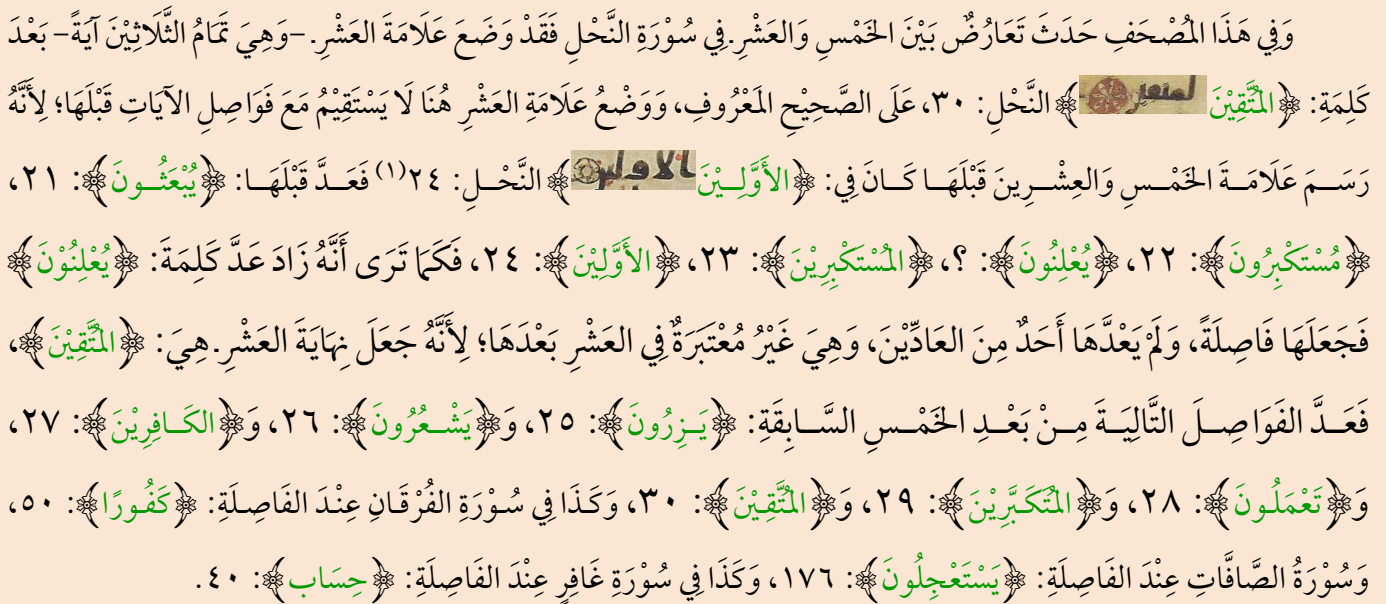 وَفِي هَذَا المُصْحَفِ حَدَثَ تَعَارُضٌ بَيْنَ الخَمْسِ وَالعَشْرِ. فِي سُوْرَةِ النَّحْلِ فَقَدْ وَضَعَ عَلَامَةَ العَشْرِ. -وَهِيَ تَمَامُ الثَّلَاثِيْنَ آيَةً- بَعْدَ
كَلِمَةِ: ﴿المُتَّقِيْنَ لمتقين﴾ النَّحْلِ: ٣٠، عَلَى الصَّحِيْحِ المَعْرُوفِ، وَوَضْعُ عَلَامَةِ العَشْرِ هُنَا لَا يَسْتَقِيْمُ مَعَ فَوَاصِلِ الآيَاتِ قَبْلَهَا؛ لِأَنَّهُ
رَسَـمَ عَلَامَـةَ الخَمْـسِ وَالعِشْـرِينَ قَبْلَهَـا كَـانَ فِي: ﴿الأَوَّلِـيْنَ الاولىن﴾ النَّحْـلِ: ٢٤(١) فَعَـدَّ قَبْلَهَـا: ﴿يُبْعَثُـونَ﴾: ٢١،
﴿مُسْتَكْبِرُونَ﴾: ٢٢، ﴿يُعْلِنُونَ﴾: ؟، ﴿المُسْتَكْبِرِيْنَ﴾: ٢٣، ﴿الأَوَّلِيْنَ﴾: ٢٤، فَكَمَا تَرَى أَنَّهُ زَادَ عَدَّ كَلِمَةَ: ﴿يُعْلِنُوْنَ﴾
فَجَعَلَهَا فَاصِلَةً، وَلَمْ يَعْدَّهَا أَحَدٌ مِنَ العَادِّيْنَ، وَهِيَ غَيْرُ مُعْتَبَرَةٌ فِي العَشْرِ بَعْدَهَا؛ لِأَنَّهُ جَعَلَ نِهَايَةَ العَشْرِ. هِيَ: ﴿المُتَّقِيْنَ﴾،
فَعَـدَّ الفَوَاصِـلَ التَّالِيَـةَ مِـنْ بَعْـدِ الخَمْـسِ السَّـابِقَةِ: ﴿يَـزِرُونَ﴾: ٢٥، وَ﴿يَشْـعُرُونَ﴾: ٢٦، وَ﴿الكَـافِرِيْنَ﴾: ٢٧،
وَ﴿تَعْمَلُـونَ﴾: ٢٨، وَ﴿المُتَكَبِّرِيْنَ﴾: ٢٩، وَ﴿المُتَّقِيْنَ﴾: ٣٠، وَكَذَا فِي سُوْرَةِ الفُرْقَانِ عِنْدَ الفَاصِلَةِ: ﴿كَفُورًا﴾: ٥٠،
وَسُوْرَةُ الصَّافَّاتِ عِنْدَ الفَاصِلَةِ: ﴿يَسْتَعْجِلُونَ﴾: ١٧٦، وَكَذَا فِي سُوْرَةِ غَافِرٍ عِنْدَ الفَاصِلَةِ: ﴿حِسَاب﴾: ٤٠.